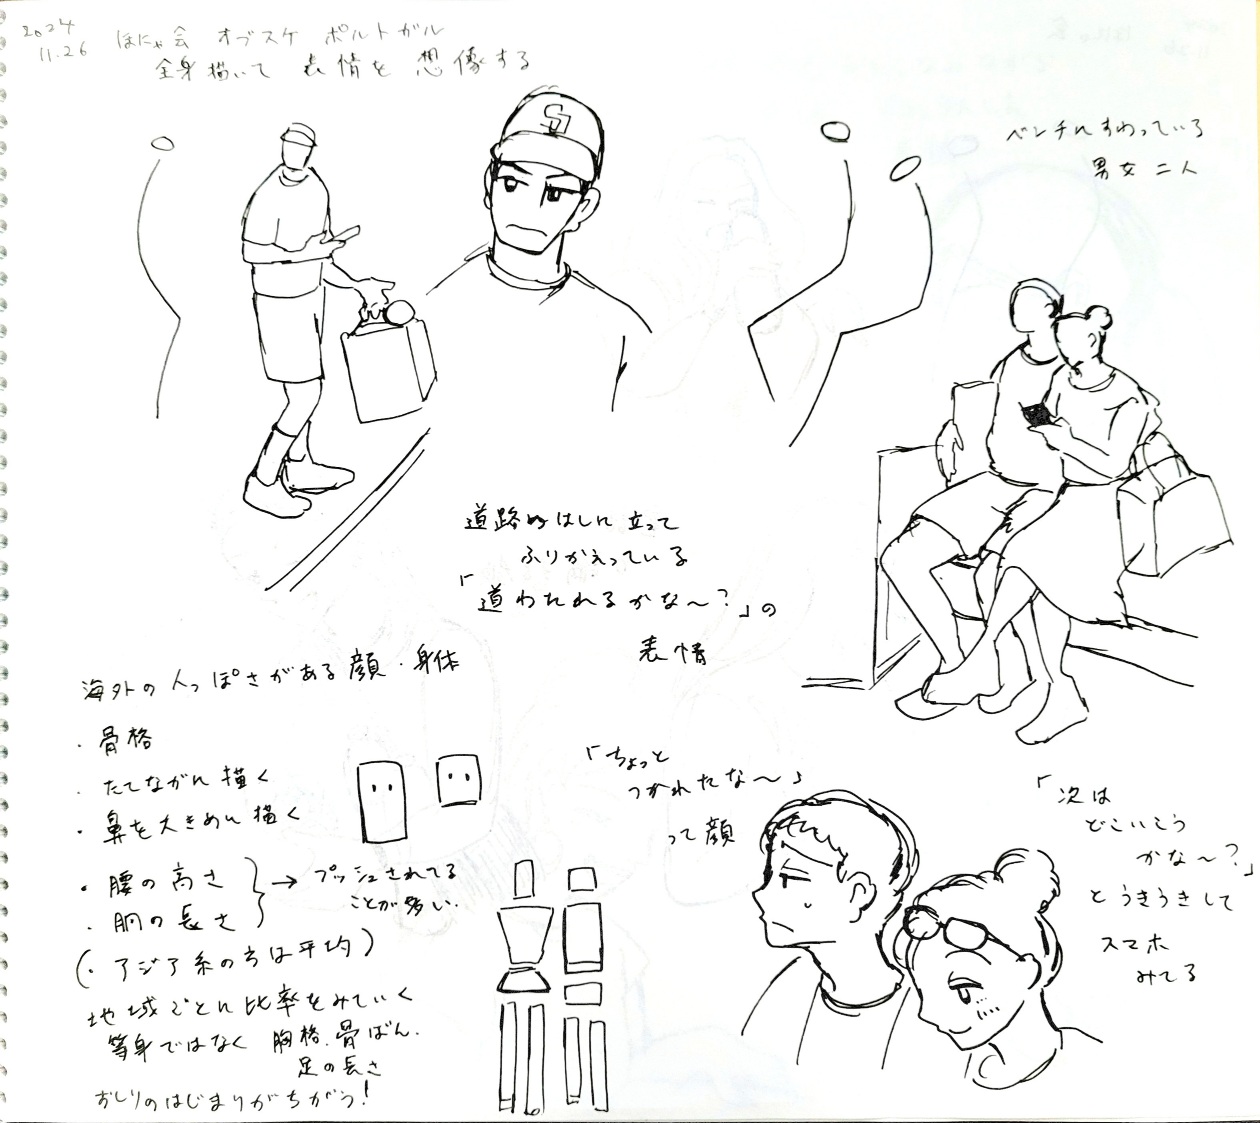 2024
11.26
ほにゃ会 オブスケ ポルトガル
全身描いて 表情を 想像する
SD
ベンチにすわっている
男女 二人
道路のはしに立って
ふりかえっている
「道わたれるかな〜?」の
表情
海外の人っぽさがある顔・身体
・骨格
・たてながに描く
・鼻を大きめに描く
・腰の高さ
・胴の長さ
→ プッシュされてる
ことが多い.
(・アジア系の方は平均)
地域ごとに比率をみていく
等身ではなく 胸格、骨ばん.
足の長さ
おしりのはじまりがちがう!
「ちょっと
つかれたな〜」
って顔
「次は
どこいこう
かな〜?」
とうきうきして
スマホ
みてる